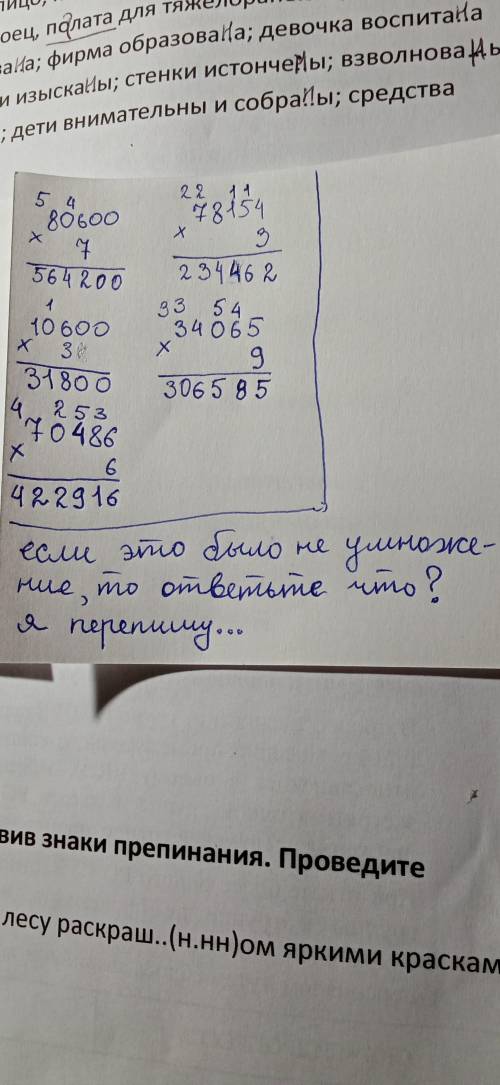 оец, палата для тяжелоран
ваНа; фирма образоваНа; девочка воспитаНа
и изыскаНы; стенки истончеНы; взволноваНы
; дети внимательны и собраНы; средства
5 4
80600
× 7
564200
22 11
78154
× 3
234462
1
10600
× 3
31800
33 54
34065
× 9
306585
4 253
70486
× 6
422916
если это было не умноже-
ние, то ответьте что?
я перепишу...
вив знаки препинания. Проведите
лесу раскраш..(н.нн)ом яркими краскам